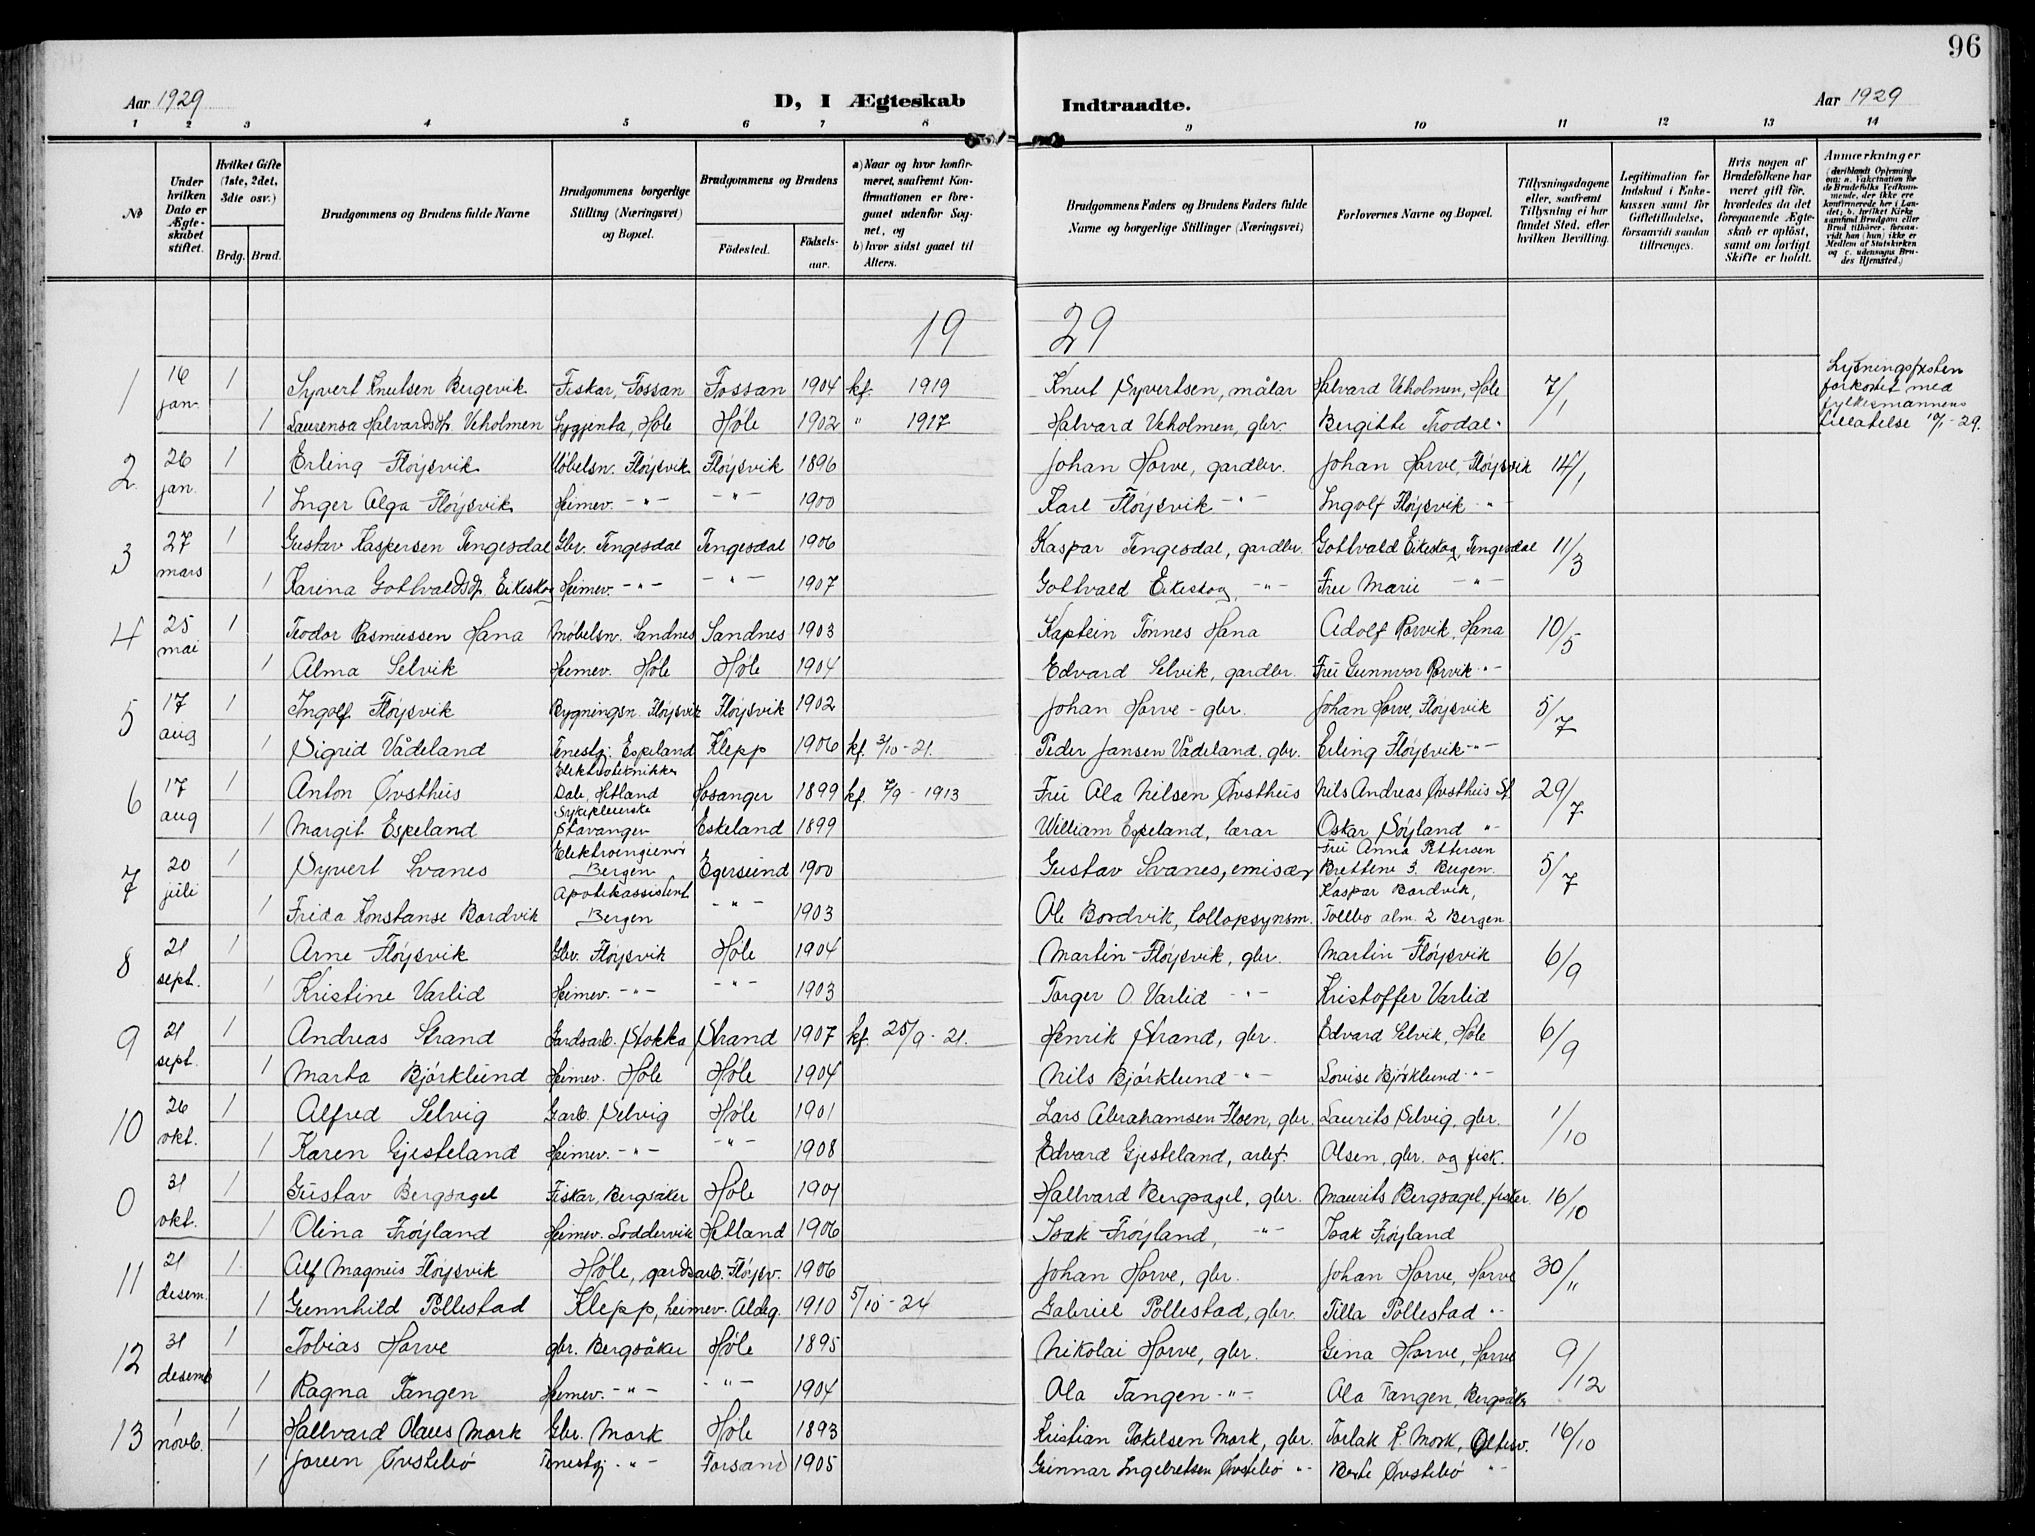 96
Aar 1929
D, I Ægteskab Indtraadte.
Aar 1929
1 2 3 4 5 6 7 8 9 10 11 12 13 14
No
Under hvilken Dato er Ægteskabet stiftet.
Hvilket Gifte (1ste, 2det, 3die osv.)
Brdg. Brud.
Brudgommens og Brudens fulde Navne
Brudgommens borgerlige Stilling (Næringsvei) og Bopæl.
Brudgommens og Brudens
Fødested. Fødselsaar.
a) Naar og hvor konfirmeret, saafremt Konfirmationen er foregaaet udenfor Sognet, og
b) hvor sidst gaaet til Alters.
Brudgommens Faders og Brudens Faders fulde Navne og borgerlige Stillinger (Næringsvei)
Forlovernes Navne og Bopæl.
Tillysningsdagene eller, saafremt Tillysning ei har fundet Sted, efter hvilken Bevilling.
Legitimation for Indskud i Enkekassen samt for Giftetilladelse, forsaavidt saadan tiltrænges.
Hvis nogen af Brudefolkene har været gift før, hvorledes da det foregaaende Ægteskab er opløst, samt om lovligt Skifte er holdt.
Anmærkninger (deriblandt Oplysning om: a. Vakcination for de Brudefolks Vedkommende, der ikke ere konfirmerede her i Landet; b. hvilket Kirkesamfund Brudgom eller Brud tilhører, forsaavidt han (hun) ikke er Medlem af Statskirken og c. udensogns Brudes Hjemsted.)
19 29
1 16 jan. 1 Syvert Knutsen Bergevik Fiskar, Fossan Fossan 1904 kf. 1919 Knut Syvertsen, målar Halvard Veholmen, Høle 7/1 Lysningsfristen forkortet med fylkesmannens tillatelse 10/1-29.
1 Laurensa Halvardsdtr. Veholmen Høle Høle 1902 " 1917 Halvard Veholmen, gbr. Bergitte Trodal "
2 26 jan. 1 Erling Fløysvik Møbelsn. Fløysvik Fløysvik 1896 Johan Horve, gardbr. Johan Horve, Fløysvik 14/1
1 Inger Alga Fløysvik Heimev. -"- -"- 1900 Karl Fløysvik -"- Ingolf Fløysvik "
3 27 mars 1 Gustav Kaspersen Tengesdal Gbr. Tengesdal Tengesdal 1906 Kaspar Tengesdal, gardbr. Gottvald Eikeskog, Tengesdal 11/3
1 Karina Gottvaldsdtr. Eikeskog Heimev. -"- -"- 1907 Gottvald Eikeskog, -"- Fru Marie -"-
4 25 mai 1 Teodor Rasmussen Hana Møbelsn. Sandnes Sandnes 1903 Kaptein Tønnes Hana Adolf Rorvik, Hana 10/5
1 Alma Selvik Heimev. Høle Høle 1904 Edvard Selvik, gardbr. Fru Gunnvor Rorvik -"-
5 17 aug 1 Ingolf Fløysvik Bygningsn. Fløysvik Fløysvik 1902 Johan Horve - gbr. Johan Horve, Fløysvik 5/7
1 Sigrid Vådeland Tenestgj. Espeland Klepp 1906 kf. 3/10-21. Peder Jansen Vådeland, gbr. Erling Fløysvik -"-
6 17 aug 1 Anton Øvsthus Elektrotekniker Dale Hetland Hosanger 1899 kf. 7/9-1913 Fru Ala Nilsen Øvsthus Nils Andreas Øvsthus St. 29/7
1 Margit Espeland Sykepleierske Stavanger Eskeland 1899 William Espeland, lærar Oskar Søyland "
7 20 juli 1 Syvert Svanes Elektroingieniør Bergen Egersund 1900 Gustav Svanes, emisær Fru Anna Pettersen Brettene 3. Bergen 5/7
1 Frida Konstanse Bordvik Apotekassistent Bergen -"- 1903 Ole Bordvik, tollopsynsm. Kaspar Bordvik, Tollbo alm. 2 Bergen
8 21 sept. 1 Arne Fløysvik Gbr. Fløysvik Høle 1904 Martin Fløysvik, gbr. Martin Fløysvik 6/9
1 Kristine Varlid Heimev. -"- -"- 1903 Torger O. Varlid -"- Kristoffer Varlid
9 21 sept. 1 Andreas Strand Gardsarb. Stokka Strand 1907 kf. 25/9-21. Henrik Strand, gbr. Edvard Selvik, Høle 6/9
1 Marta Bjørklund Heimev. Høle Høle 1904 Nils Bjørklund -"- Lovise Bjørklund -"-
10 26 okt. 1 Alfred Selvig Garb. Selvig Høle 1901 Lars Abrahamsen Floen, gbr. Laurits Selvig, gbr. 1/10
1 Karen Gjesteland Heimev. -"- -"- 1908 Edvard Gjesteland, arbf. Olsen, gbr. og fisk.
0 31 okt. 1 Gustav Bergsagel Fiskar, Bergsåker Høle 1901 Hallvard Bergsagel, gbr. Maurits Bergsagel, fisker 16/10
1 Olina Frøyland Heimev. Loddervik Hetland 1906 Isak Frøyland, -"- Isak Frøyland
11 21 desem. 1 Alf Magnus Fløysvik Høle, gardsarb. Fløysv. 1906 Johan Horve, gbr. Johan Horve, Horve 30/11
1 Gunnhild Pollestad Klepp, heimev. Aldeg. 1910 5/10-24 Gabriel Pollestad, gbr. Tilla Pollestad "
12 31 desemb 1 Tobias Horve gbr. Bergsåker Høle 1895 Nikolai Horve, gbr. Gina Horve, Horve 9/12
1 Ragna Tangen Heimev. -"- -"- 1904 Ola Tangen -"- Ola Tangen, Bergsåker
13 1 novb. 1 Hallvard Olaus Mork Gbr. Mork Høle 1893 Kristian Tokelsen Mork, gbr. Torlak K. Mork, 16/10
1 Joren Øvstebø Tenestgj. -"- Forsand 1905 Gunnar Ingebretsen Øvstebø " Berte Øvstebø "